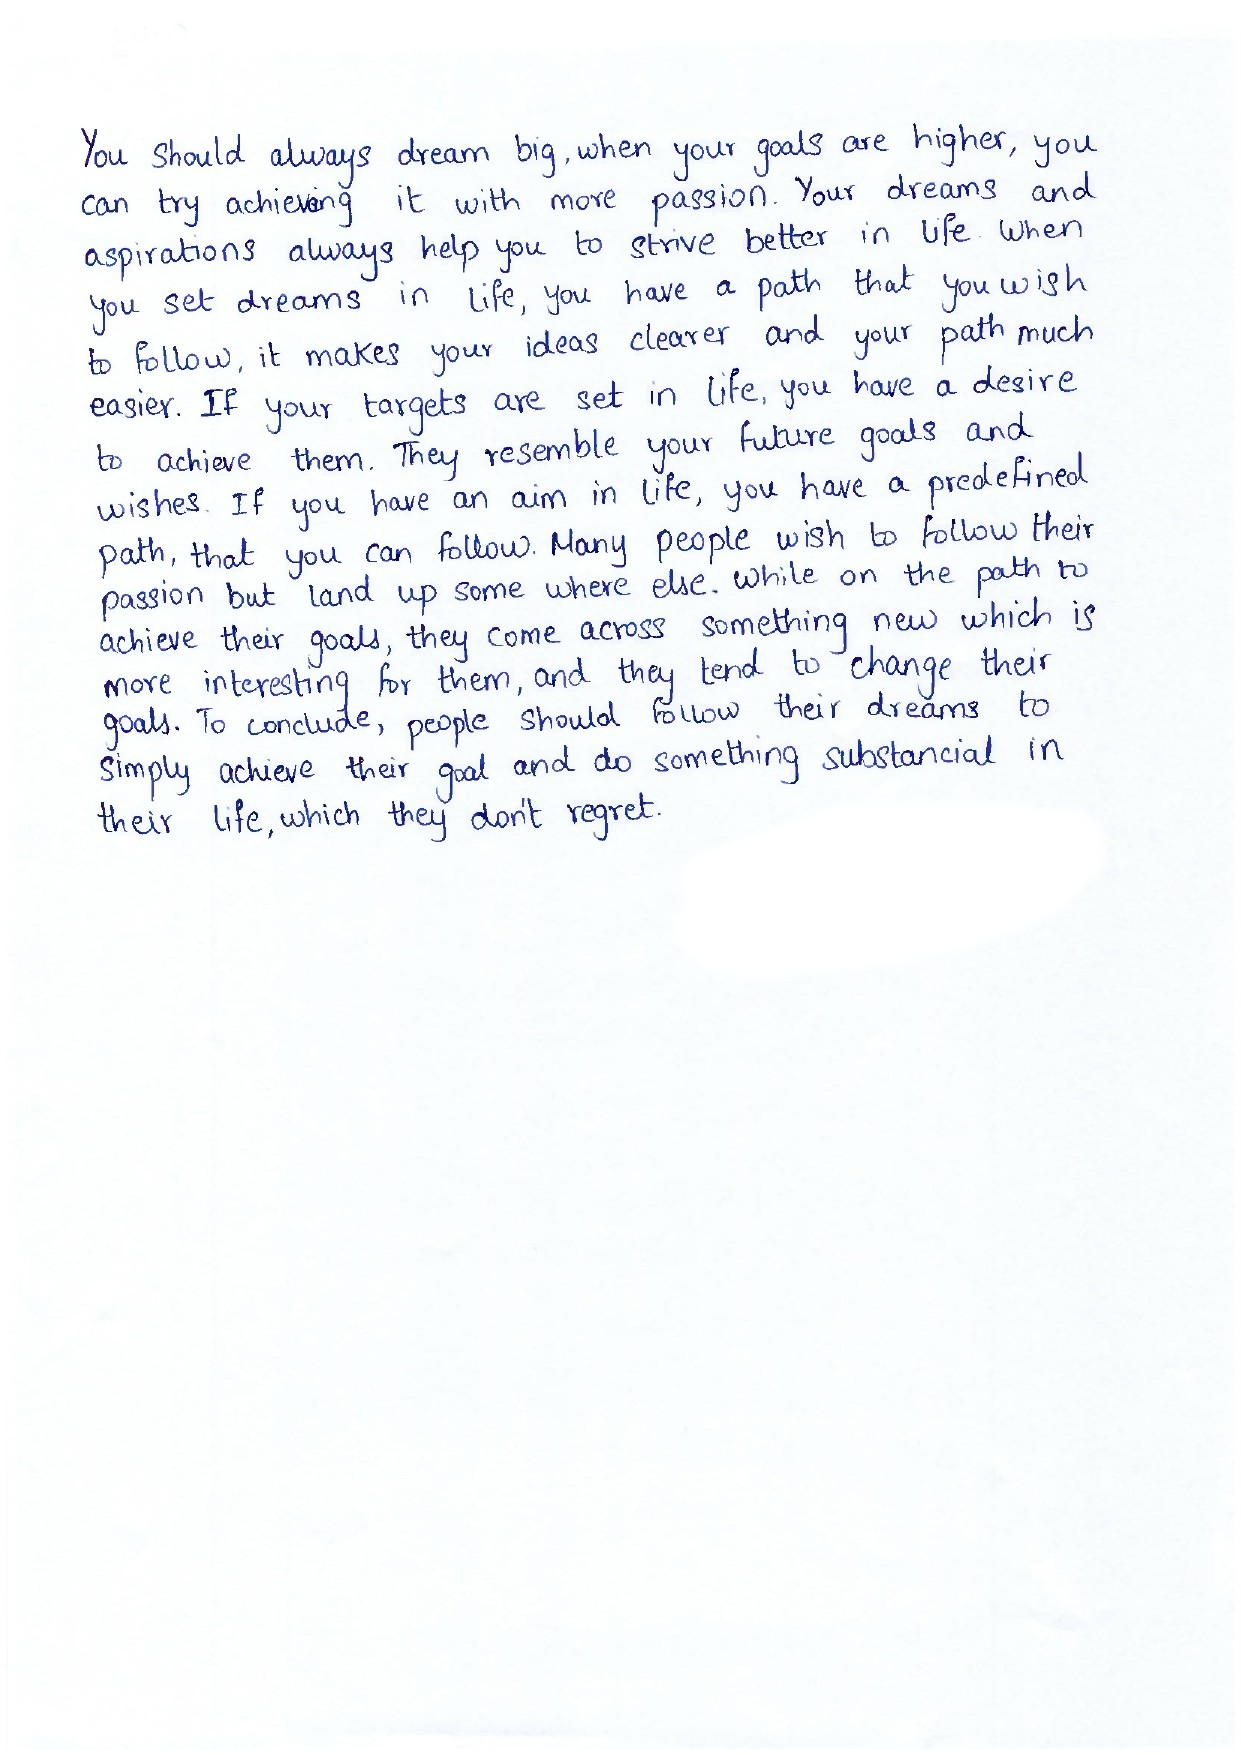 You should always dream big, when your goals are higher, you
can try achieving it with more passion. Your dreams and
aspirations always help you to strive better in life. When
you set dreams in life, you have a path that you wish
to follow, it makes your ideas clearer and your path much
easier. If your targets are set in life, you have a desire
to achieve them. They resemble your future goals and
wishes. If you have an aim in life, you have a predefined
path, that you can follow. Many people wish to follow their
passion but land up some where else. While on the path to
achieve their goals, they come across something new which is
more interesting for them, and they tend to change their
goals. To conclude, people should follow their dreams to
simply achieve their goal and do something substancial in
their life, which they don't regret.